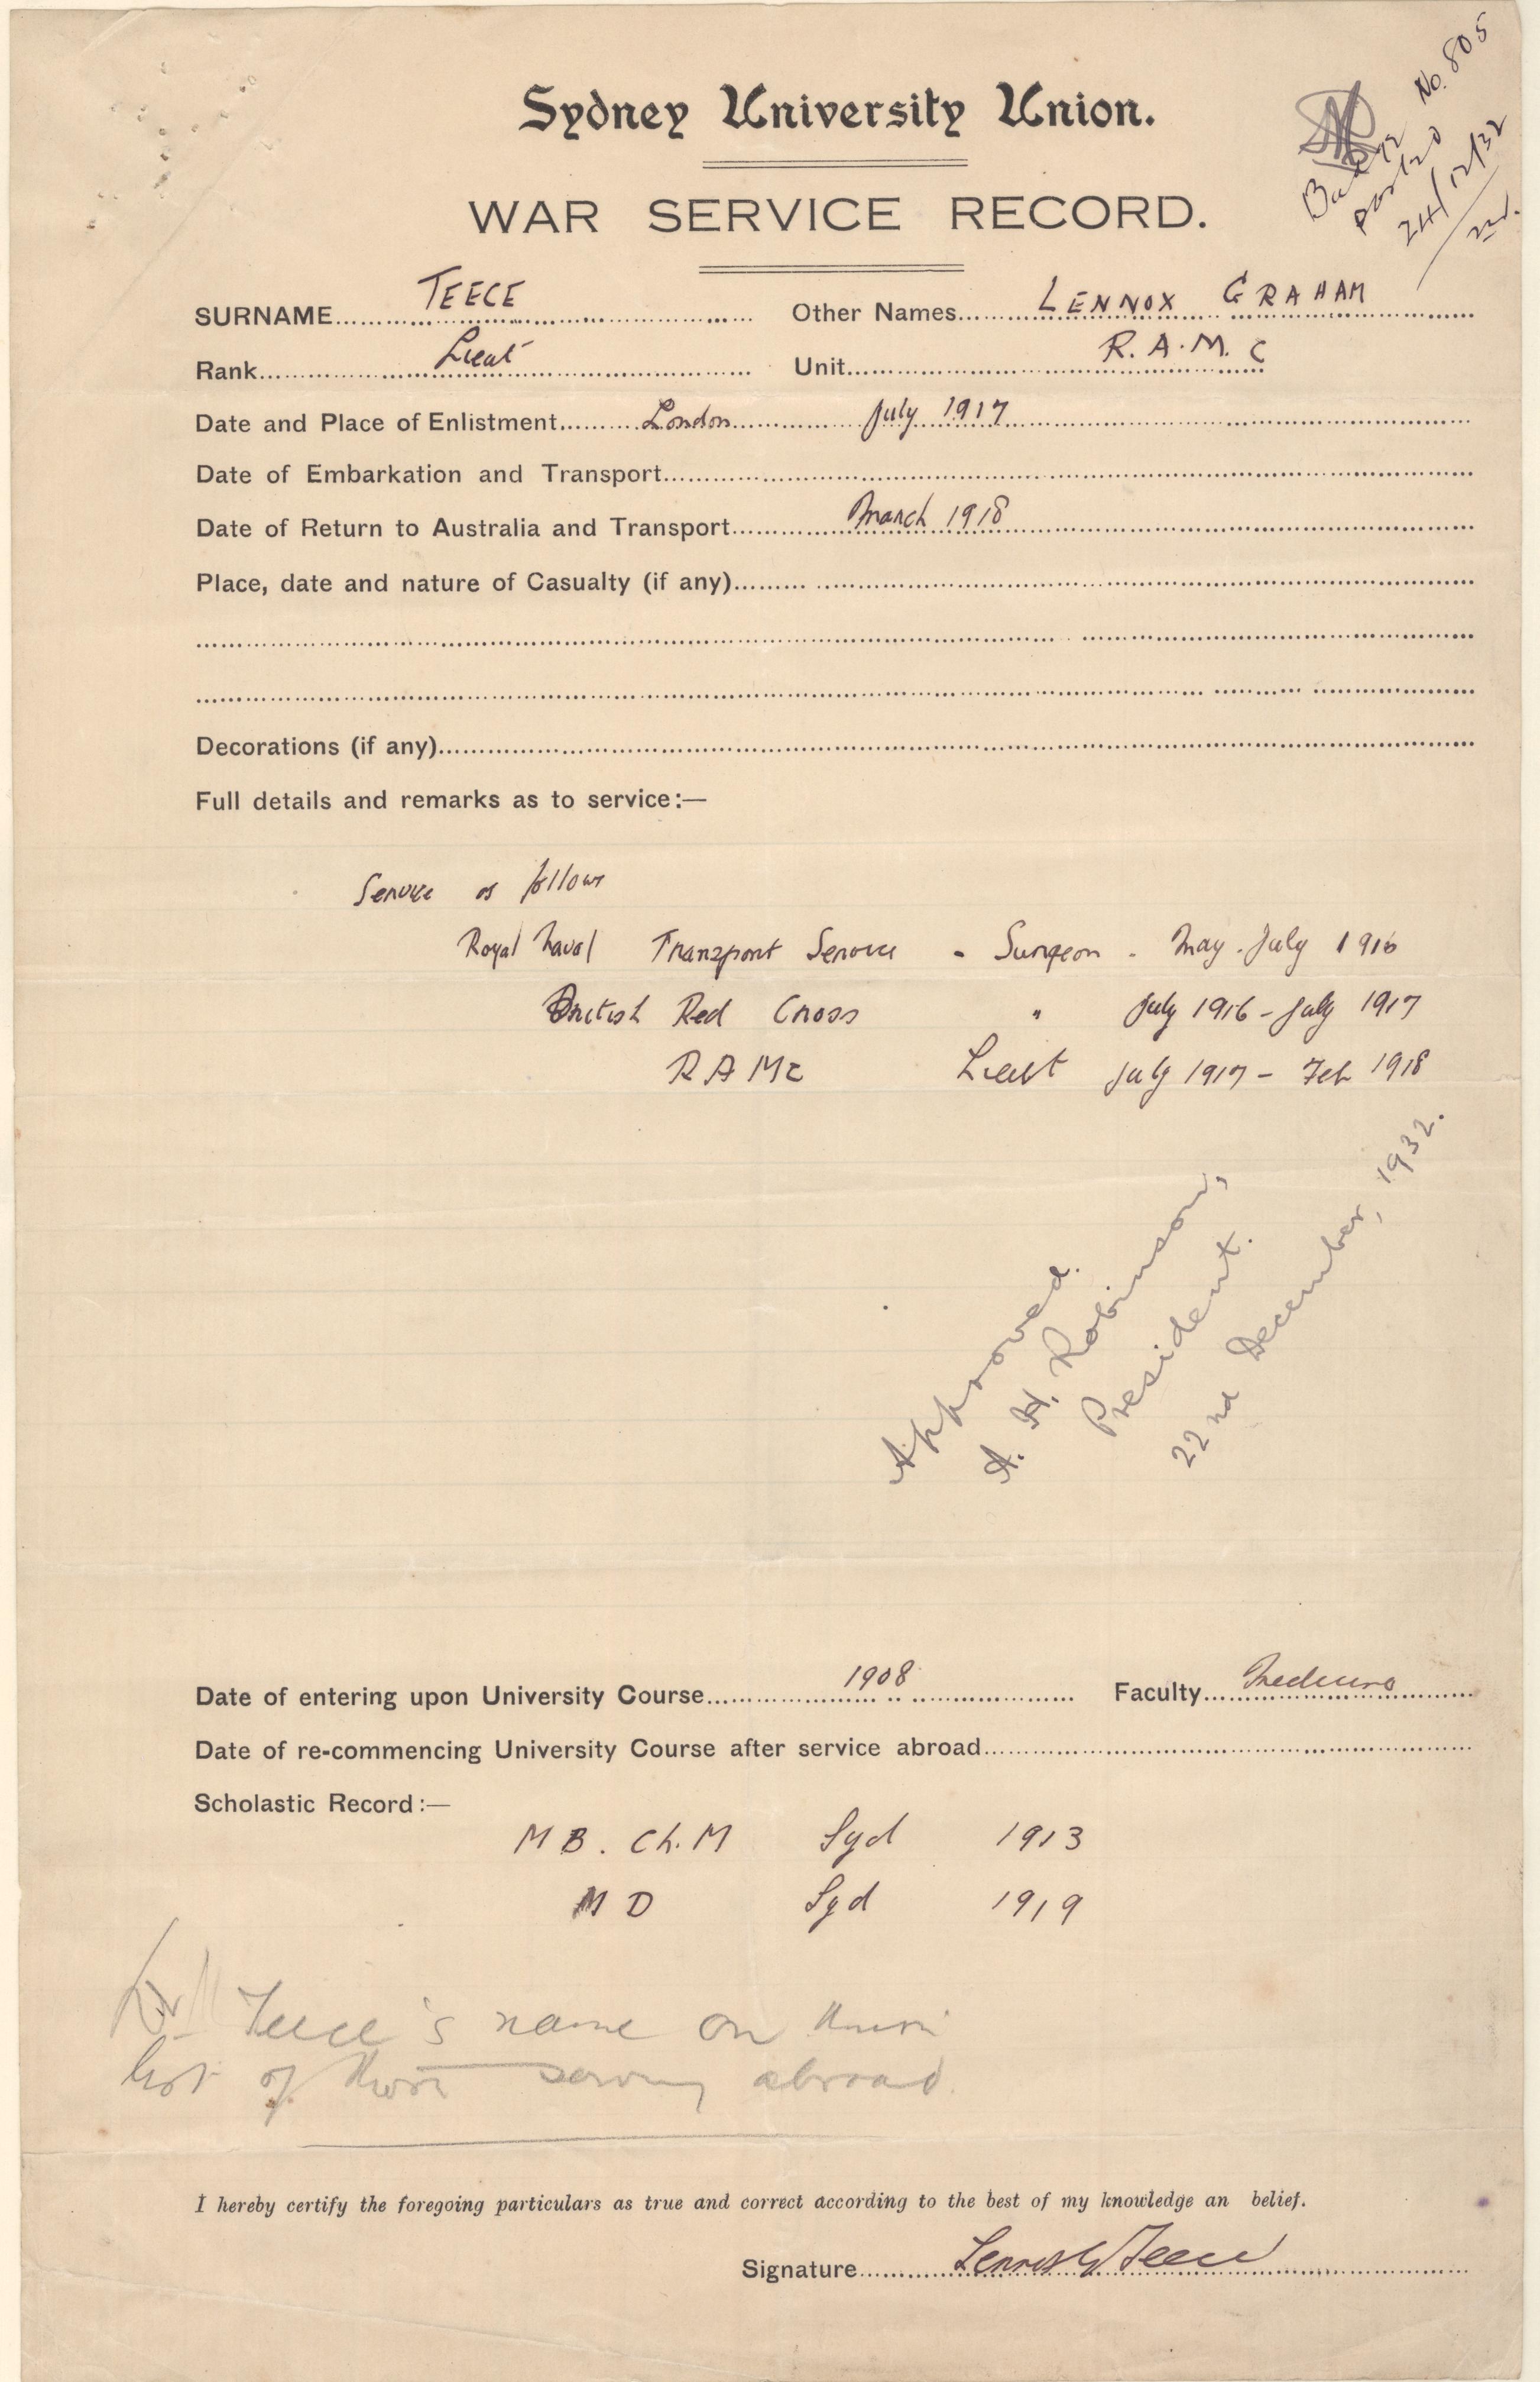 Badge No. 805
posted
24/12/32
Sydney University Union.
WAR SERVICE RECORD.
SURNAME TEECE Other Names LENNOX GRAHAM
Rank Lieut Unit R.A.M.C
Date and Place of Enlistment London July 1917
Date of Embarkation and Transport
Date of Return to Australia and Transport March 1918
Place, date and nature of Casualty (if any)
Decorations (if any)
Full details and remarks as to service:—
Service as follows
Royal Naval Transport Service - Surgeon - May - July 1916
British Red Cross " July 1916 - July 1917
RAMC Lieut July 1917 - Feb 1918
Approved.
A. H. Robinson,
President.
22nd December, 1932.
Date of entering upon University Course 1908 Faculty Medicine
Date of re-commencing University Course after service abroad
Scholastic Record:—
M B. Ch. M Syd 1913
M D Syd 1919
Dr Teece's name on
list of those serving abroad.
I hereby certify the foregoing particulars as true and correct according to the best of my knowledge an belief.
Signature Lennox G Teece